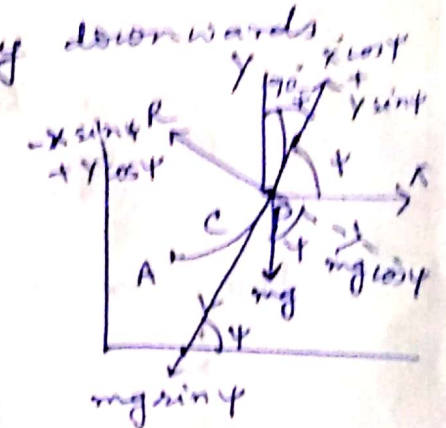 y downwards
Y
X cosψ
+
Y sinψ
90-ψ
-X sinψ
+ Y cosψ
R
ψ
X
C
P
ψ
A
mg cosψ
mg
ψ
mg sinψ